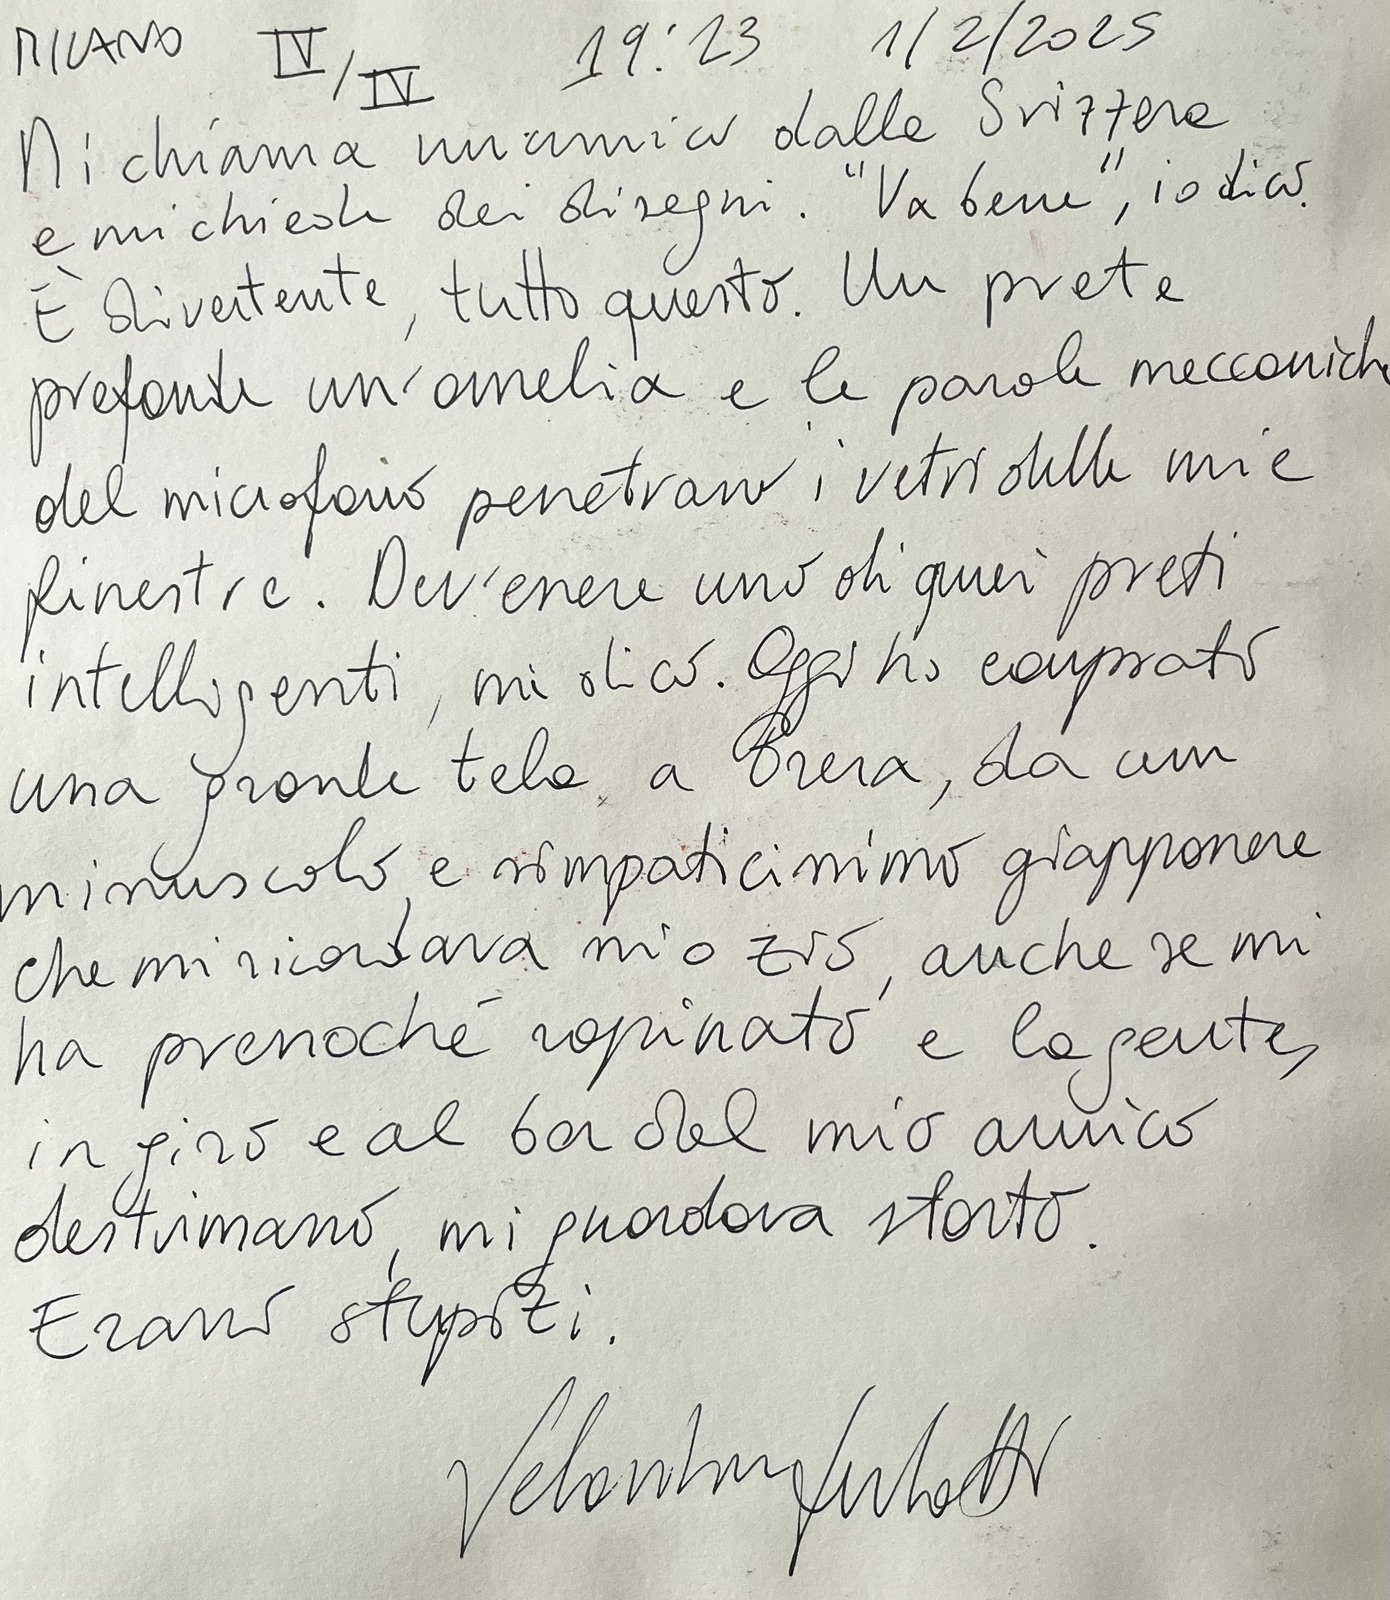 MILANO IV/IV 19:23 1/2/2025
Mi chiama un amico dalla Svizzera
e mi chiede dei disegni. "Va bene", io dico.
È divertente, tutto questo. Un prete
prefande un'omelia e le parole meccaniche
del microfono penetrano i vetri delle mie
finestre. Dev'essere uno di quei preti
intelligenti, mi dico. Oggi ho comprato
una grande tela a Brera, da un
minuscolo e simpaticissimo giapponese
che mi ricordava mio zio, anche se mi
ha pressoché rapinato e la gente,
in giro e al bar del mio amico
destrimano, mi guardava storto.
Erano stupizi.